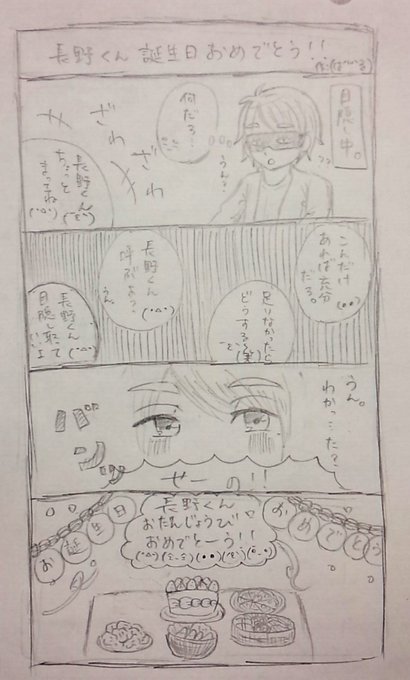 長野くん 誕生日おめでとう!!
目隠し中。
うん?
何だろ?
ざわ
ざわ
長野くん
ちょっと
まっててね
こんだけ
あれば充分
だろ。
足りなかったら
どうする?
(笑)
長野くん
呼ぶよっ?
うん。
長野くん
目隠し取って
いいよ
うん。
わかっ…た?
せーの!!
長野くん
おたんじょうび
おめでとーう!!
お誕生日
おめでとう